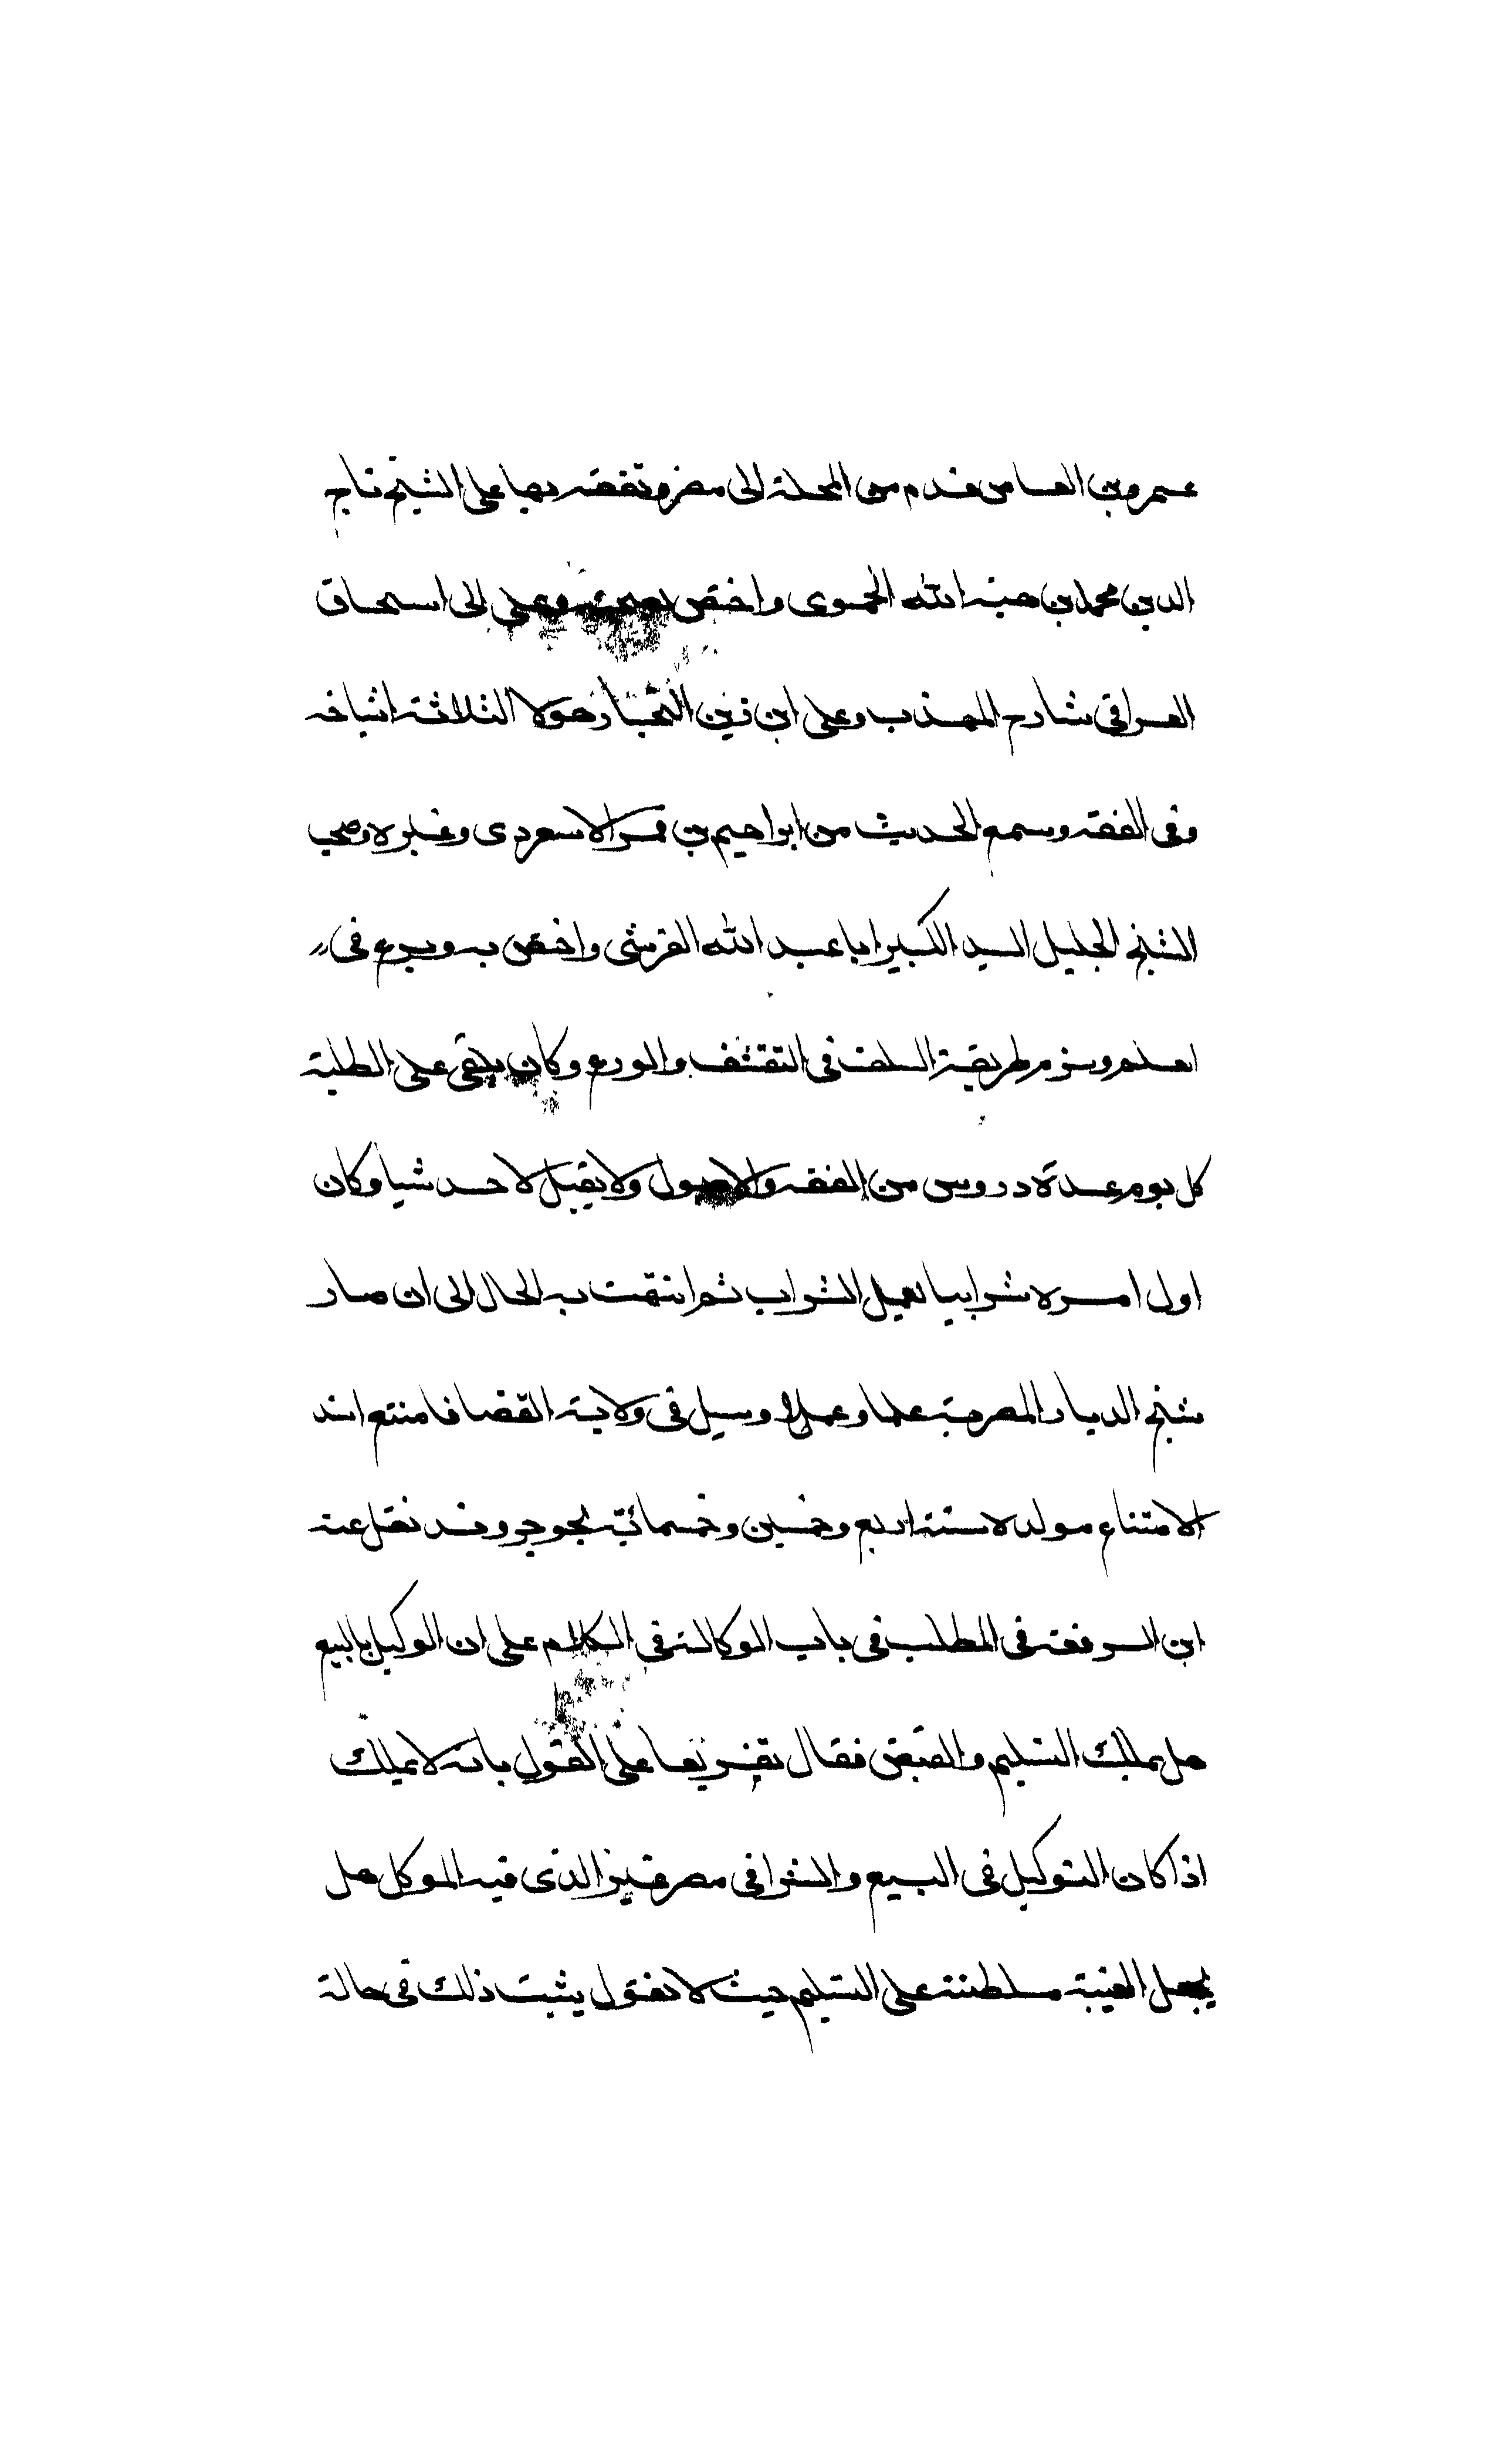 عمرو بن العاص قدم من المحلة الى مصر وتفقه بها على الشيخ تاج
الدين محمد بن هبة الله الحموى واختص بصحبته وعلى ابى اسحاق
العراقى شارح المهذب وعلى ابن زين التجار هولا الثلاثة اشياخه
وفى الفقه وسمع الحديث من ابراهيم بن عمر الاسعردى وغيره وصحب
الشيخ الجليل السيد الكبير ابا عبد الله القرشى واختص به وبرع فى
العلم ولزم طريقة السلف فى التقشف والورع وكان يلقى على الطلبة
كل يوم عدة دروس من الفقه والاصول ولا يقبل لاحد شيا وكان
اول امره شرابيا يعمل الشراب ثم انتهت به الحال الى ان صار
شيخ الديار المصرية علما وعملا وسيل فى ولاية القضا فامتنع اشد
الامتناع مولده سنة اربع وخمسين وخمسمائة بجوجر وقد نقل عنه
ابن الرفعة فى المطلب فى باب الوكالة فى الكلام على ان الوكيل بالبيع
هل يملك التسليم والقبض فقال تفريعا على القول بانه لا يملك
اذا كان التوكيل فى البيع والشرا فى مصر غير الذى فيه الموكل هل
يجعل الغيبة مسلطنة على التسليم حيث لا نقول يثبت ذلك فى حالة